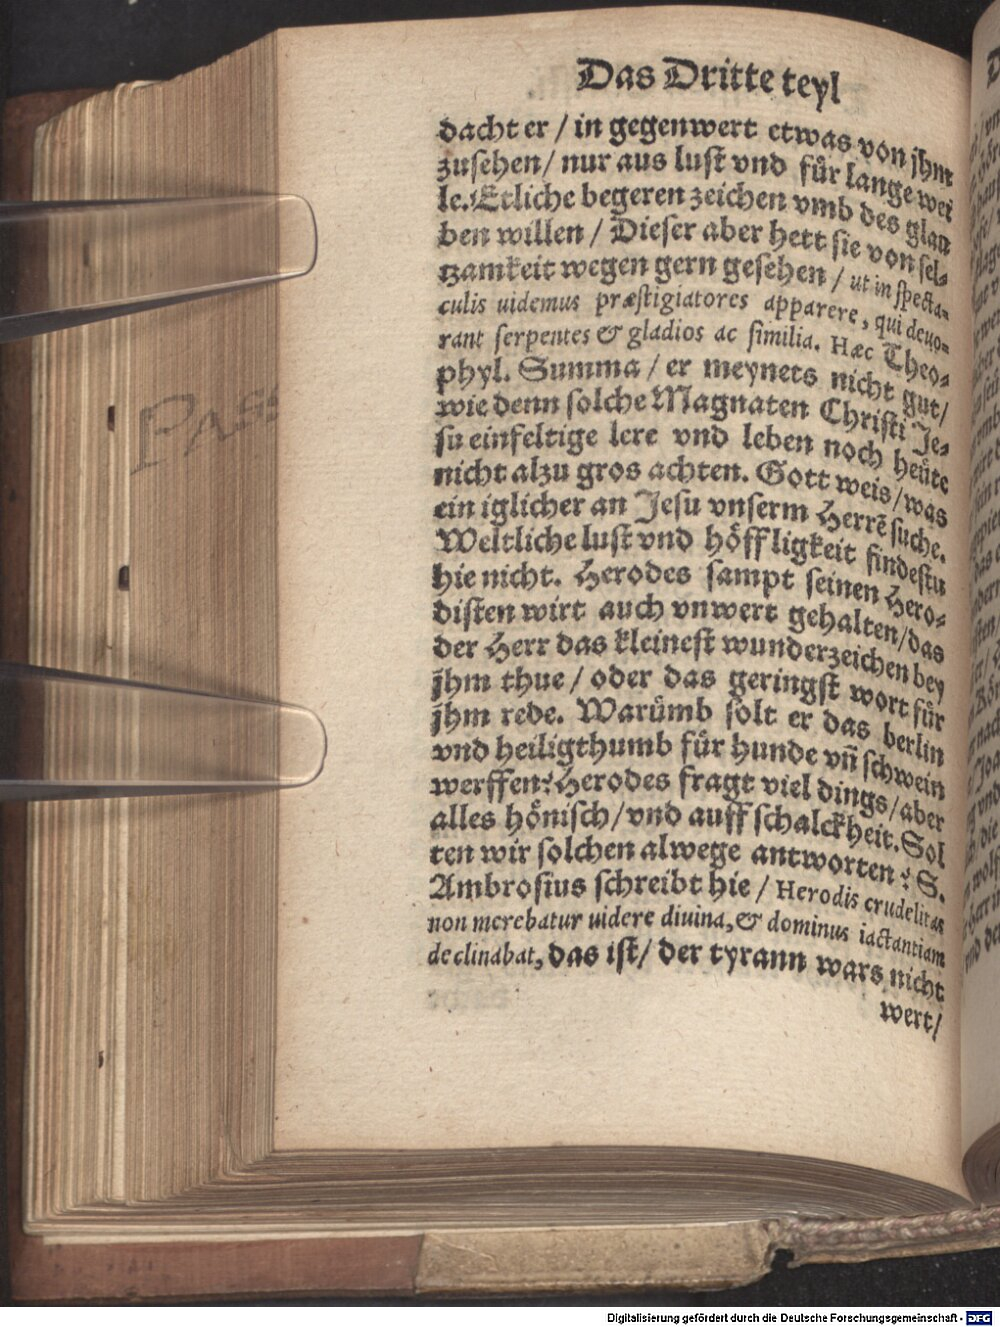 Das Dritte teyl
dacht er / in gegenwert etwas von jhm
zusehen / nur aus lust vnd fůr lange wei
le. Etliche begeren zeichen vmb des glau
ben willen / Dieser aber hett sie von sel-
tzamkeit wegen gern gesehen / ut in specta-
culis uidemus præstigiatores apparere, qui deuo-
rant serpentes & gladios ac similia. Hæc Theo-
phyl. Summa / er meynets nicht gut /
wie denn solche Magnaten Christi Je-
su einfeltige lere vnd leben noch heůte
nicht alzu gros achten. Gott weis / was
ein iglicher an Jesu vnserm Herrē suche.
Weltliche lust vnd hőffligkeit findestu
hie nicht. Herodes sampt seinen Hero-
disten wirt auch vnwert gehalten / das
der Herr das kleinest wunderzeichen bey
jhm thue / oder das geringst wort fůr
jhm rede. Warůmb solt er das berlin
vnd heiligthumb fůr hunde vn̄ schwein
werffen? Herodes fragt viel dings / aber
alles hőnisch / vnd auff schalckheit. Sol
ten wir solchen alwege antworten? S.
Ambrosius schreibt hie / Herodis crudelitas
non merebatur uidere diuina, & dominus iactantiam
declinabat, das ist / der tyrann wars nicht
wert /
PASS
Digitalisierung gefördert durch die Deutsche Forschungsgemeinschaft - DFG